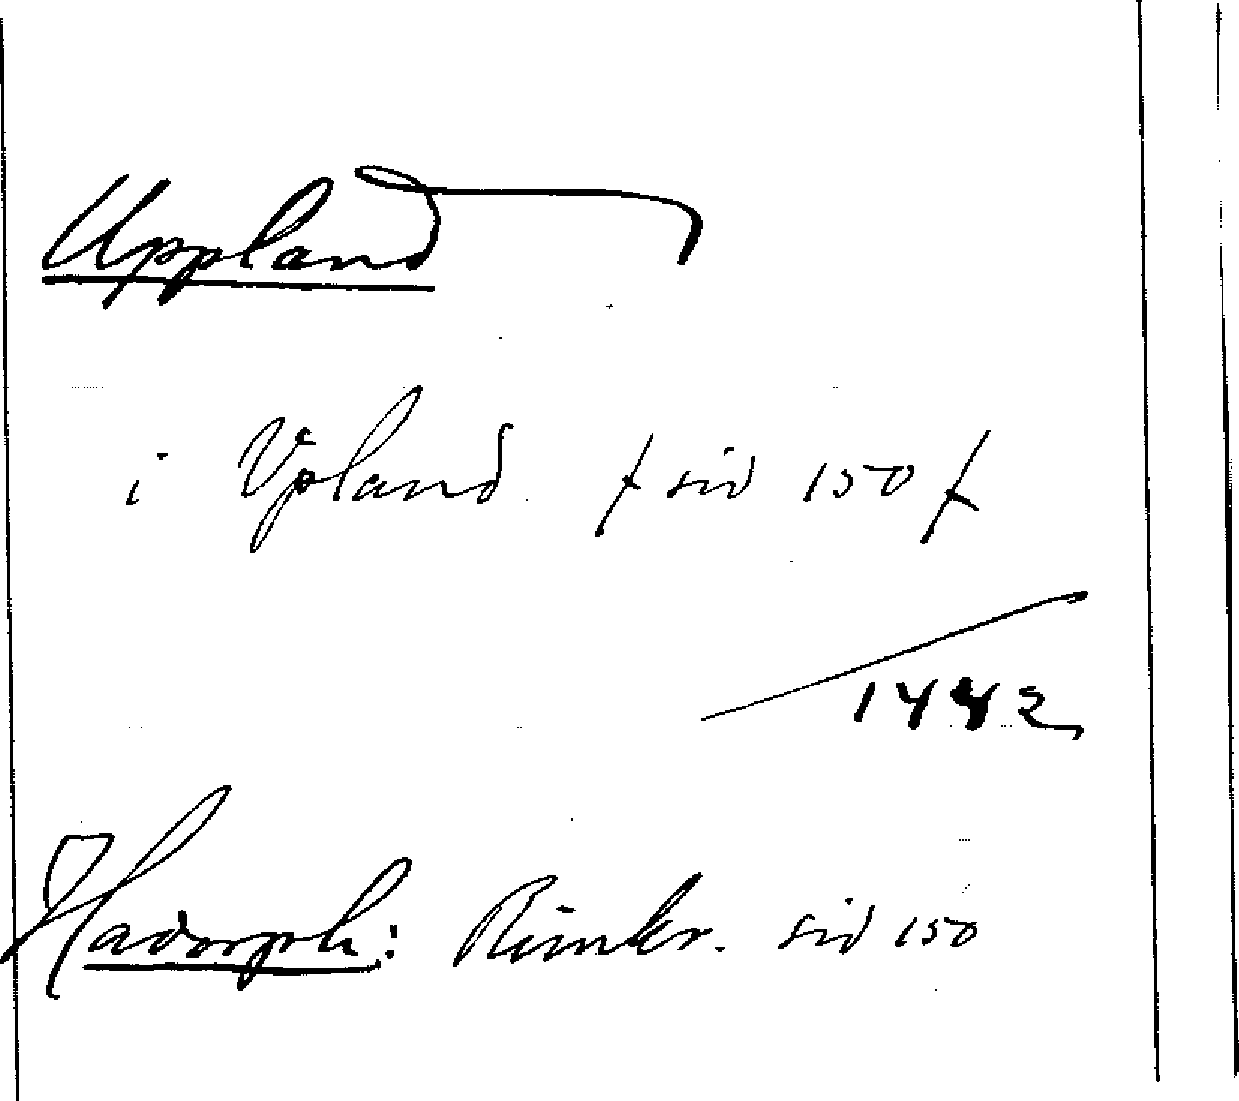 Uppland
i Vpland / sid 150 /
1442
Hadorph: Rimkr. sid 150